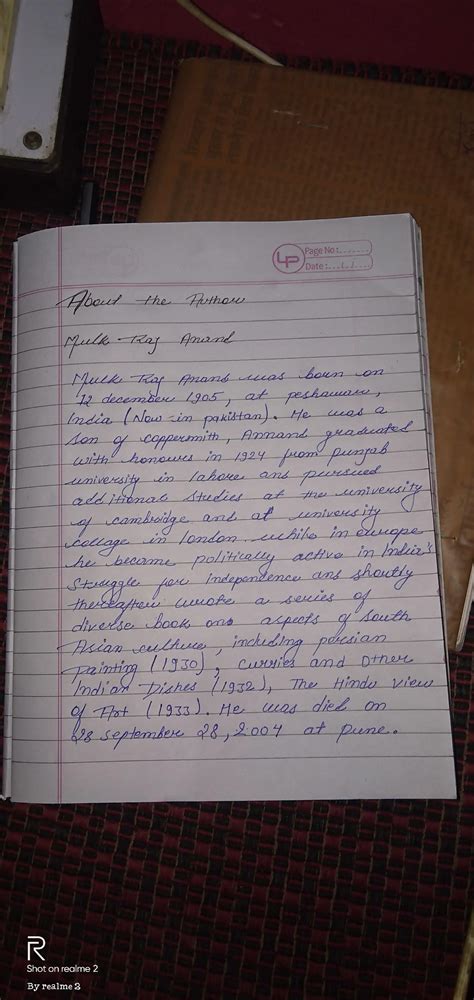 LP
Page No:
Date:
About the Authour
Mulk Raj Anand
Mulk Raj Anand was born on
12 december 1905, at peshawar,
India (Now in pakistan). He was a
son of coppersmith, Annand graduated
with honours in 1924 from punjab
university in lahore and pursued
additional studies at the university
of cambridge and at university
collage in london. while in europe
he became politically active in India's
struggle for independence and shortly
thereafter wrote a series of
diverse book on aspects of south
Asian culture, including persian
Painting (1930), curries and other
Indian Dishes (1932), The Hindu view
of Art (1933). He was died on
28 september 28, 2004 at pune.
R
Shot on realme 2
By realme 2